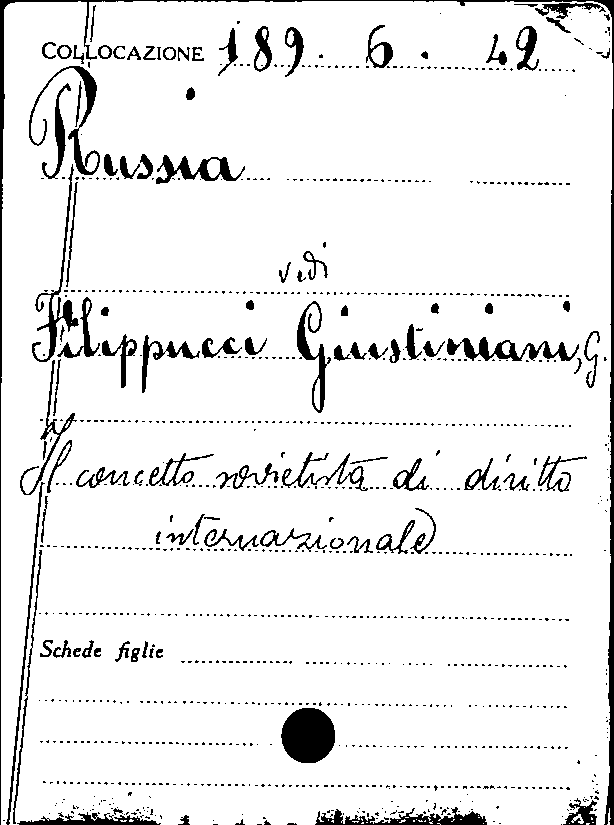 COLLOCAZIONE 189. 6. 42
Russia
vedi
Filippucci Giustiniani, G.
Il concetto sovietista di diritto
internazionale
Schede figlie